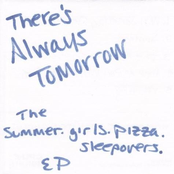 There's
Always
Tomorrow
The
Summer. girls. pizza.
sleepovers.
EP